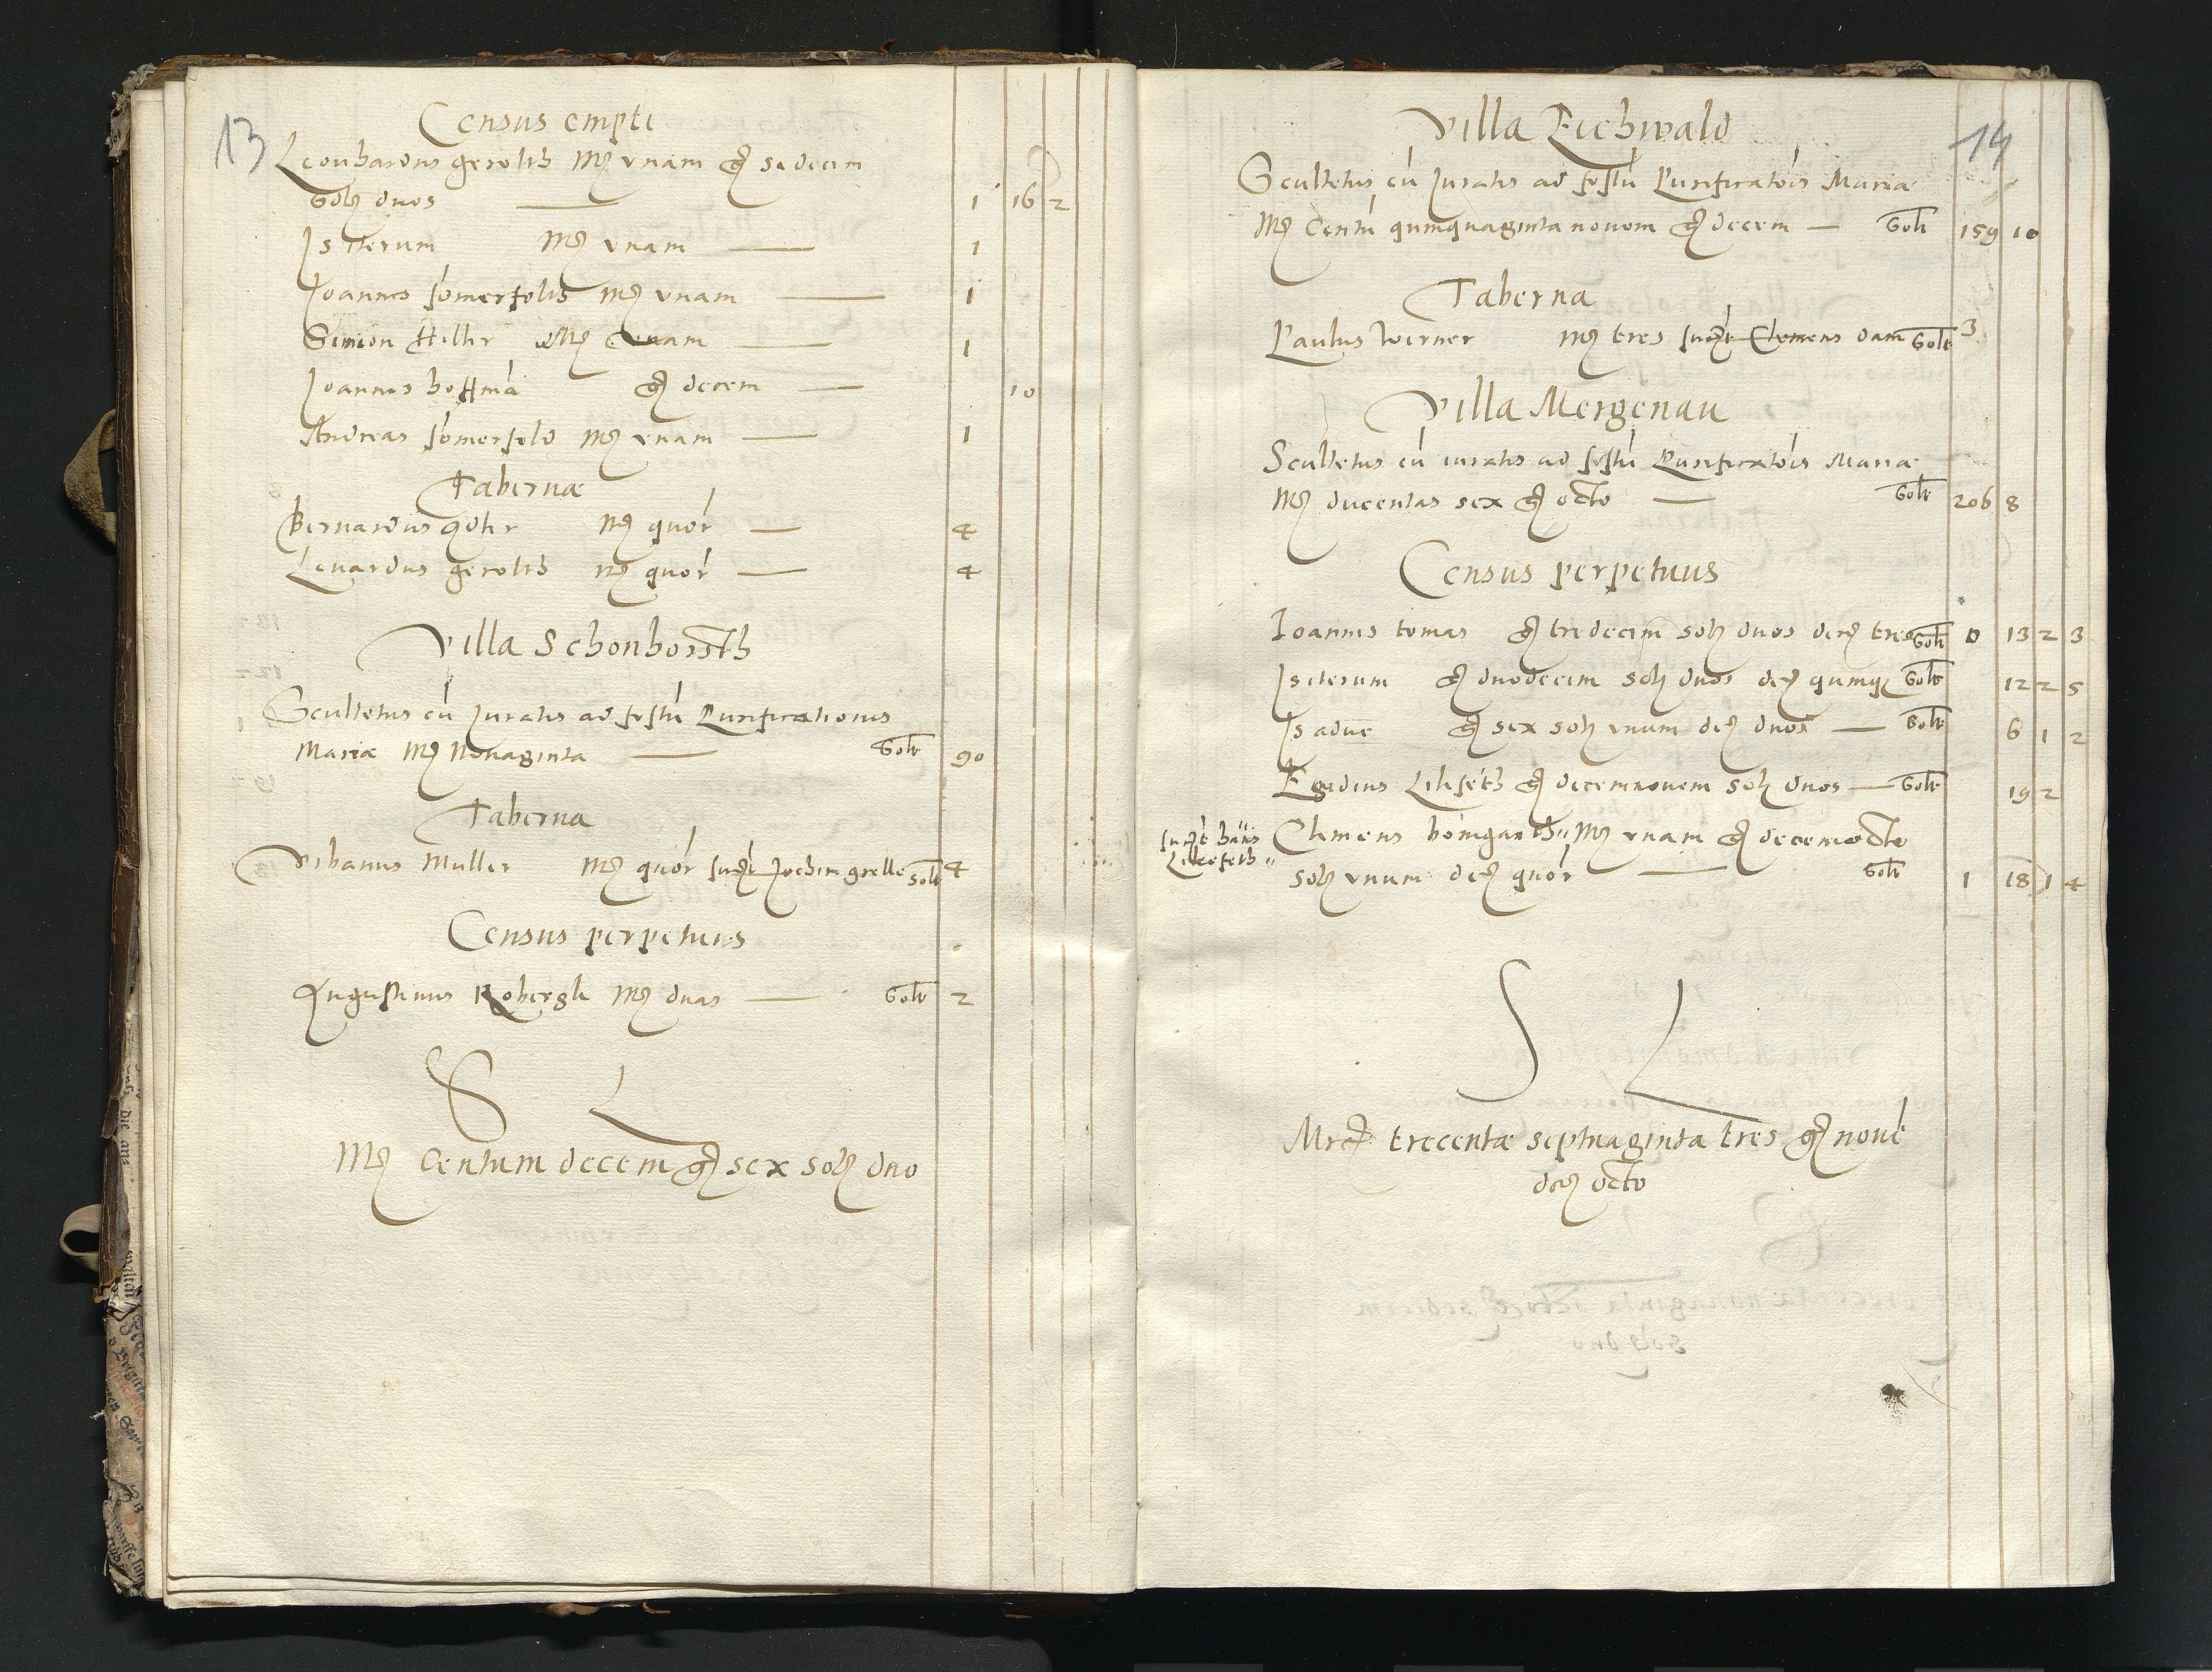 13
Census empti
Leonhardus gerolth Mɟ vnam gɟ sedecim
solɟ duos — 1 16 2
Is iterum Mɟ vnam — 1
Joannes somerfolth Mɟ vnam — 1
Simon Hiller Mɟ vnam — 1
Joannes hoffmā gɟ decem — 10
Andreas somerfeld Mɟ vnam — 1
Tabernæ
Bernardus Mɟ quor — 4
Lenardus gerolth Mɟ quor — 4
Villa Schonborsth
Scultetus cū Juratis ad festū Purificationis
Mariæ Mɟ Nonaginta — Solt 90
Taberna
Vrbanus Muller Mɟ quor Jochim grelle Solt 4
Census perpetuus
Augustinus Robergk Mɟ duas — Solt 2
S L
Mɟ Centum decem gɟ sex solɟ duo
14
Villa Eichwald
Scultetus cū Juratis ad festū Purificatōis Mariæ
Mɟ Centū quinquaginta novem gɟ decem — Solt 159 10
Taberna
Paulus Werner Mɟ tres Clemens dam Solt 3
Villa Mergenau
Scultetus cū iuratis ad festū Purificatōis Mariæ
Mɟ ducentas sex gɟ octo — Solt 206 8
Census perpetuus
Joannes tomas gɟ tredecim solɟ duos denɟ tres Solt 0 13 2 3
Is iterum gɟ duodecim solɟ duos deɟ quinqɟ Solt 12 2 5
Is aduc gɟ sex solɟ vnum deɟ duos — Solt 6 1 2
Egidius Likefeth gɟ decemnovem solɟ duos — Solt 19 2
hans Clemens bomgarth Mɟ vnam gɟ decemocto
Likefeth solɟ vnum deɟ quor — Solt 1 18 1 4
S L
Mrcɟ trecentæ septuaginta tres gɟ nove
deɟ octo